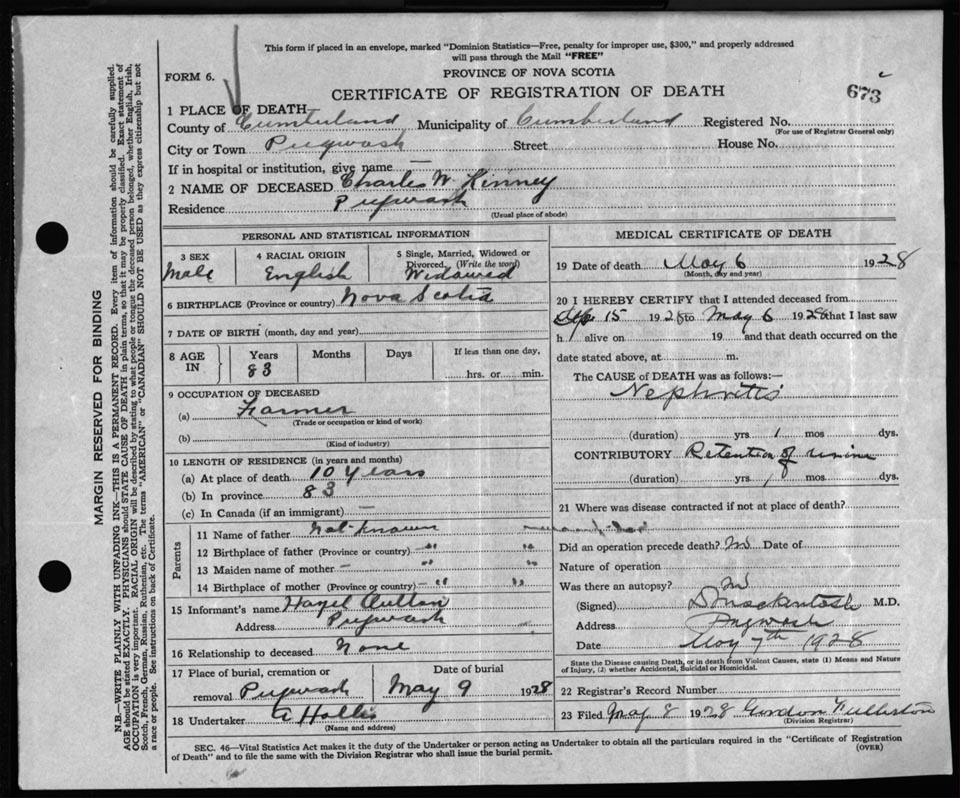 This form if placed in an envelope, marked "Dominion Statistics—Free, penalty for improper use, $300," and properly addressed
will pass through the Mail "FREE"
FORM 6.
PROVINCE OF NOVA SCOTIA
CERTIFICATE OF REGISTRATION OF DEATH
673
1 PLACE OF DEATH
County of Cumberland Municipality of Cumberland Registered No.
(For use of Registrar General only)
City or Town Pugwash Street House No.
If in hospital or institution, give name —
2 NAME OF DECEASED Charles W. Kinney
Residence Pugwash
(Usual place of abode)
PERSONAL AND STATISTICAL INFORMATION
3 SEX
Male
4 RACIAL ORIGIN
English
5 Single, Married, Widowed or
Divorced. (Write the word)
Widowed
6 BIRTHPLACE (Province or country) Nova Scotia
7 DATE OF BIRTH (month, day and year)
8 AGE
IN
Years
83
Months
Days
If less than one day,
hrs. or min.
9 OCCUPATION OF DECEASED
(a) Farmer
(Trade or occupation or kind of work)
(b)
(Kind of industry)
10 LENGTH OF RESIDENCE (in years and months)
(a) At place of death 10 Years
(b) In province 83
(c) In Canada (if an immigrant) —
Parents
11 Name of father not known
12 Birthplace of father (Province or country) " "
13 Maiden name of mother —
14 Birthplace of mother (Province or country) — " "
15 Informant's name Hazel
Address Pugwash
16 Relationship to deceased None
17 Place of burial, cremation or
removal Pugwash
Date of burial
May 9 1928
18 Undertaker A
(Name and address)
MEDICAL CERTIFICATE OF DEATH
19 Date of death May 6 1928
(Month, day and year)
20 I HEREBY CERTIFY that I attended deceased from
15 1928 to May 6 1928 that I last saw
h alive on 19 and that death occurred on the
date stated above, at m.
The CAUSE of DEATH was as follows:—
Nephritis
(duration) yrs. 1 mos dys.
CONTRIBUTORY Retention of urine
(duration) yrs. 1 mos dys.
21 Where was disease contracted if not at place of death?
Did an operation precede death? No Date of
Nature of operation
Was there an autopsy? No
(Signed) Mackintosh M.D.
Address Pugwash
Date May 7th 1928
State the Disease causing Death, or in death from Violent Causes, state (1) Means and Nature
of Injury, (2) whether Accidental, Suicidal or Homicidal.
22 Registrar's Record Number
23 Filed May 8 1928 Gordon Fullerton
(Division Registrar)
SEC. 46—Vital Statistics Act makes it the duty of the Undertaker or person acting as Undertaker to obtain all the particulars required in the "Certificate of Registration
of Death" and to file the same with the Division Registrar who shall issue the burial permit.
(OVER)
MARGIN RESERVED FOR BINDING
N.B.—WRITE PLAINLY WITH UNFADING INK—THIS IS A PERMANENT RECORD. Every item of information should be carefully supplied.
AGE should be stated EXACTLY. PHYSICIANS should STATE CAUSE OF DEATH in plain terms, so that it may be properly classified. Exact statement of
OCCUPATION is very important. RACIAL ORIGIN will be described by stating to what people or tongue the deceased person belonged, whether English, Irish,
Scotch, French, German, Russian, Ruthenian, etc. The terms "AMERICAN" or "CANADIAN" SHOULD NOT BE USED as they express citizenship but not
a race or people. See instructions on back of Certificate.